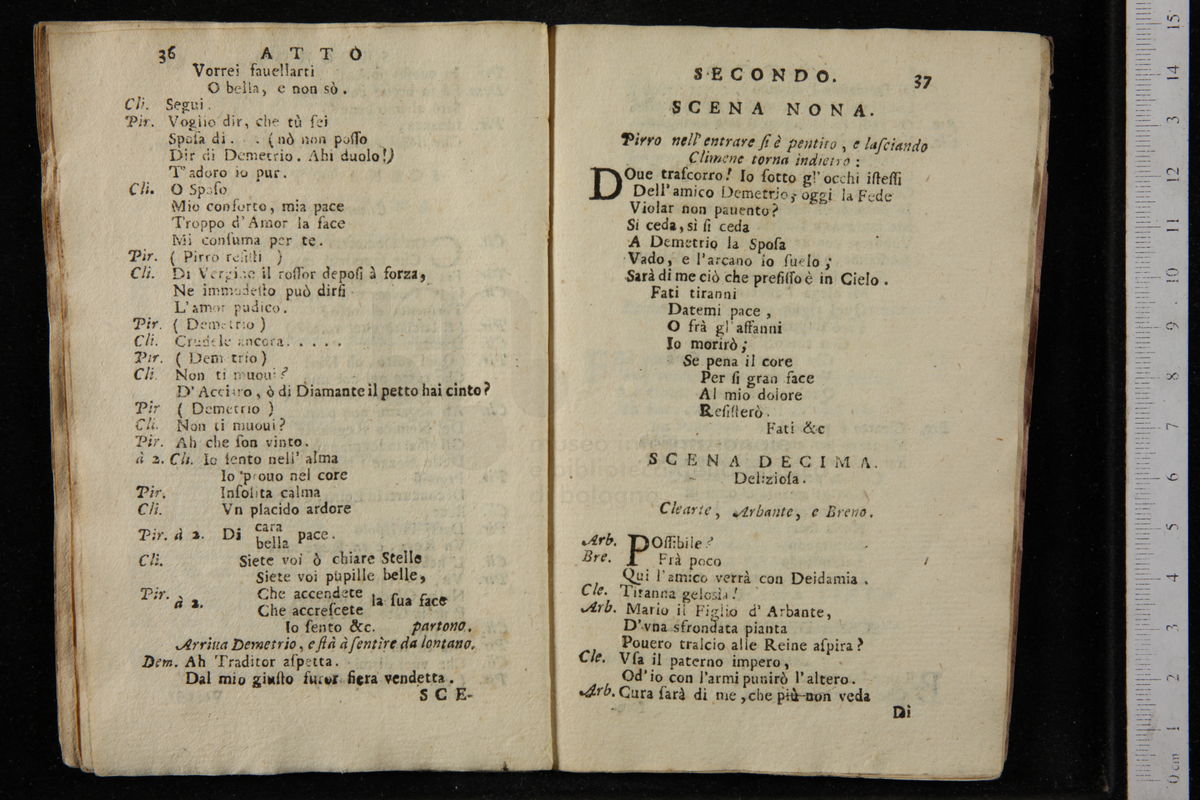 36 ATTO
Vorrei fauellarti
O bella, e non sò.
Cli. Segui.
Pir. Voglio dir, che tù sei
Sposa di. . . (nò non posso
Dir di Demetrio. Ahi duolo!)
T'adoro io pur.
Cli. O Sposo
Mio conforto, mia pace
Troppo d'Amor la face
Mi consuma per te.
Pir. ( Pirro resisti )
Cli. Di Vergine il rossor deposi à forza,
Ne immodesto può dirsi
L'amor pudico.
Pir. ( Demetrio )
Cli. Crudele ancora. . . . .
Pir. ( Demetrio )
Cli. Non ti muoui?
D'Acciaro, ò di Diamante il petto hai cinto?
Pir ( Demetrio )
Cli. Non ti muoui?
Pir. Ah che son vinto.
à 2. Cli. Io sento nell'alma
Io prouo nel core
Pir. Insolita calma
Cli. Vn placido ardore
Pir. à 2. Di cara
bella pace.
Cli. Siete voi ò chiare Stelle
Siete voi pupille belle,
Pir. à 2. Che accendete
Che accrescete la sua face
Io sento &c. partono.
Arriua Demetrio, e stà à sentire da lontano.
Dem. Ah Traditor aspetta.
Dal mio giusto furor fiera vendetta.
SCE-
SECONDO. 37
SCENA NONA.
Pirro nell'entrare si è pentito, e lasciando
Climene torna indietro:
DOue trascorro! Io sotto gl'occhi istessi
Dell'amico Demetrio, oggi la Fede
Violar non pauento?
Si ceda, sì si ceda
A Demetrio la Sposa
Vado, e l'arcano io suelo;
Sarà di me ciò che prefisso è in Cielo.
Fati tiranni
Datemi pace,
O frà gl'affanni
Io morirò;
Se pena il core
Per sì gran face
Al mio dolore
Resisterò.
Fati &c
SCENA DECIMA.
Deliziosa.
Clearte, Arbante, e Breno.
Arb. POssibile?
Bre. Frà poco
Qui l'amico verrà con Deidamia.
Cle. Tiranna gelosia!
Arb. Mario il Figlio d'Arbante,
D'vna sfrondata pianta
Pouero tralcio alle Reine aspira?
Cle. Vsa il paterno impero,
Od'io con l'armi punirò l'altero.
Arb. Cura sarà di me, che più non veda
Di
0 cm 1 2 3 4 5 6 7 8 9 10 11 12 13 14 15
museo internazionale
e biblioteca
di bologna